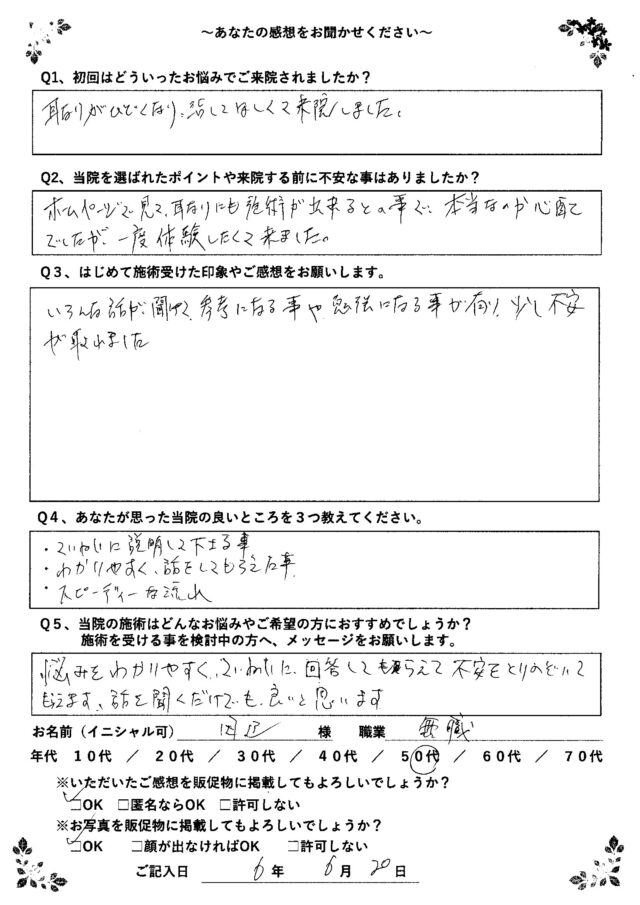 ～あなたの感想をお聞かせください～
Q1、初回はどういったお悩みでご来院されましたか？
耳なりがひどくなり、治してほしくて来院しました。
Q2、当院を選ばれたポイントや来院する前に不安な事はありましたか？
ホームページで見て、耳なりにも施術が出来るとの事で、本当なのか心配
でしたが、一度体験したくて来ました。
Q３、はじめて施術受けた印象やご感想をお願いします。
いろんな話が聞けて、参考になる事や勉強になる事が有り、少し不安
が取れました
Q４、あなたが思った当院の良いところを３つ教えてください。
・ていねいに説明して下さる事
・わかりやすく、話をしてもらえた事
・スピーディーな流れ
Q５、当院の施術はどんなお悩みやご希望の方におすすめでしょうか？
施術を受ける事を検討中の方へ、メッセージをお願いします。
悩みをわかりやすく、ていねいに、回答してもらえて不安をとりのぞいて
もらえます、話を聞くだけでも、良いと思います
お名前（イニシャル可） 様 職業 無職
年代 １０代 ／ ２０代 ／ ３０代 ／ ４０代 ／ ５０代 ／ ６０代 ／ ７０代
※いただいたご感想を販促物に掲載してもよろしいでしょうか？
□OK □匿名ならOK □許可しない
※お写真を販促物に掲載してもよろしいでしょうか？
□OK □顔が出なければOK □許可しない
ご記入日 6 年 6 月 20 日